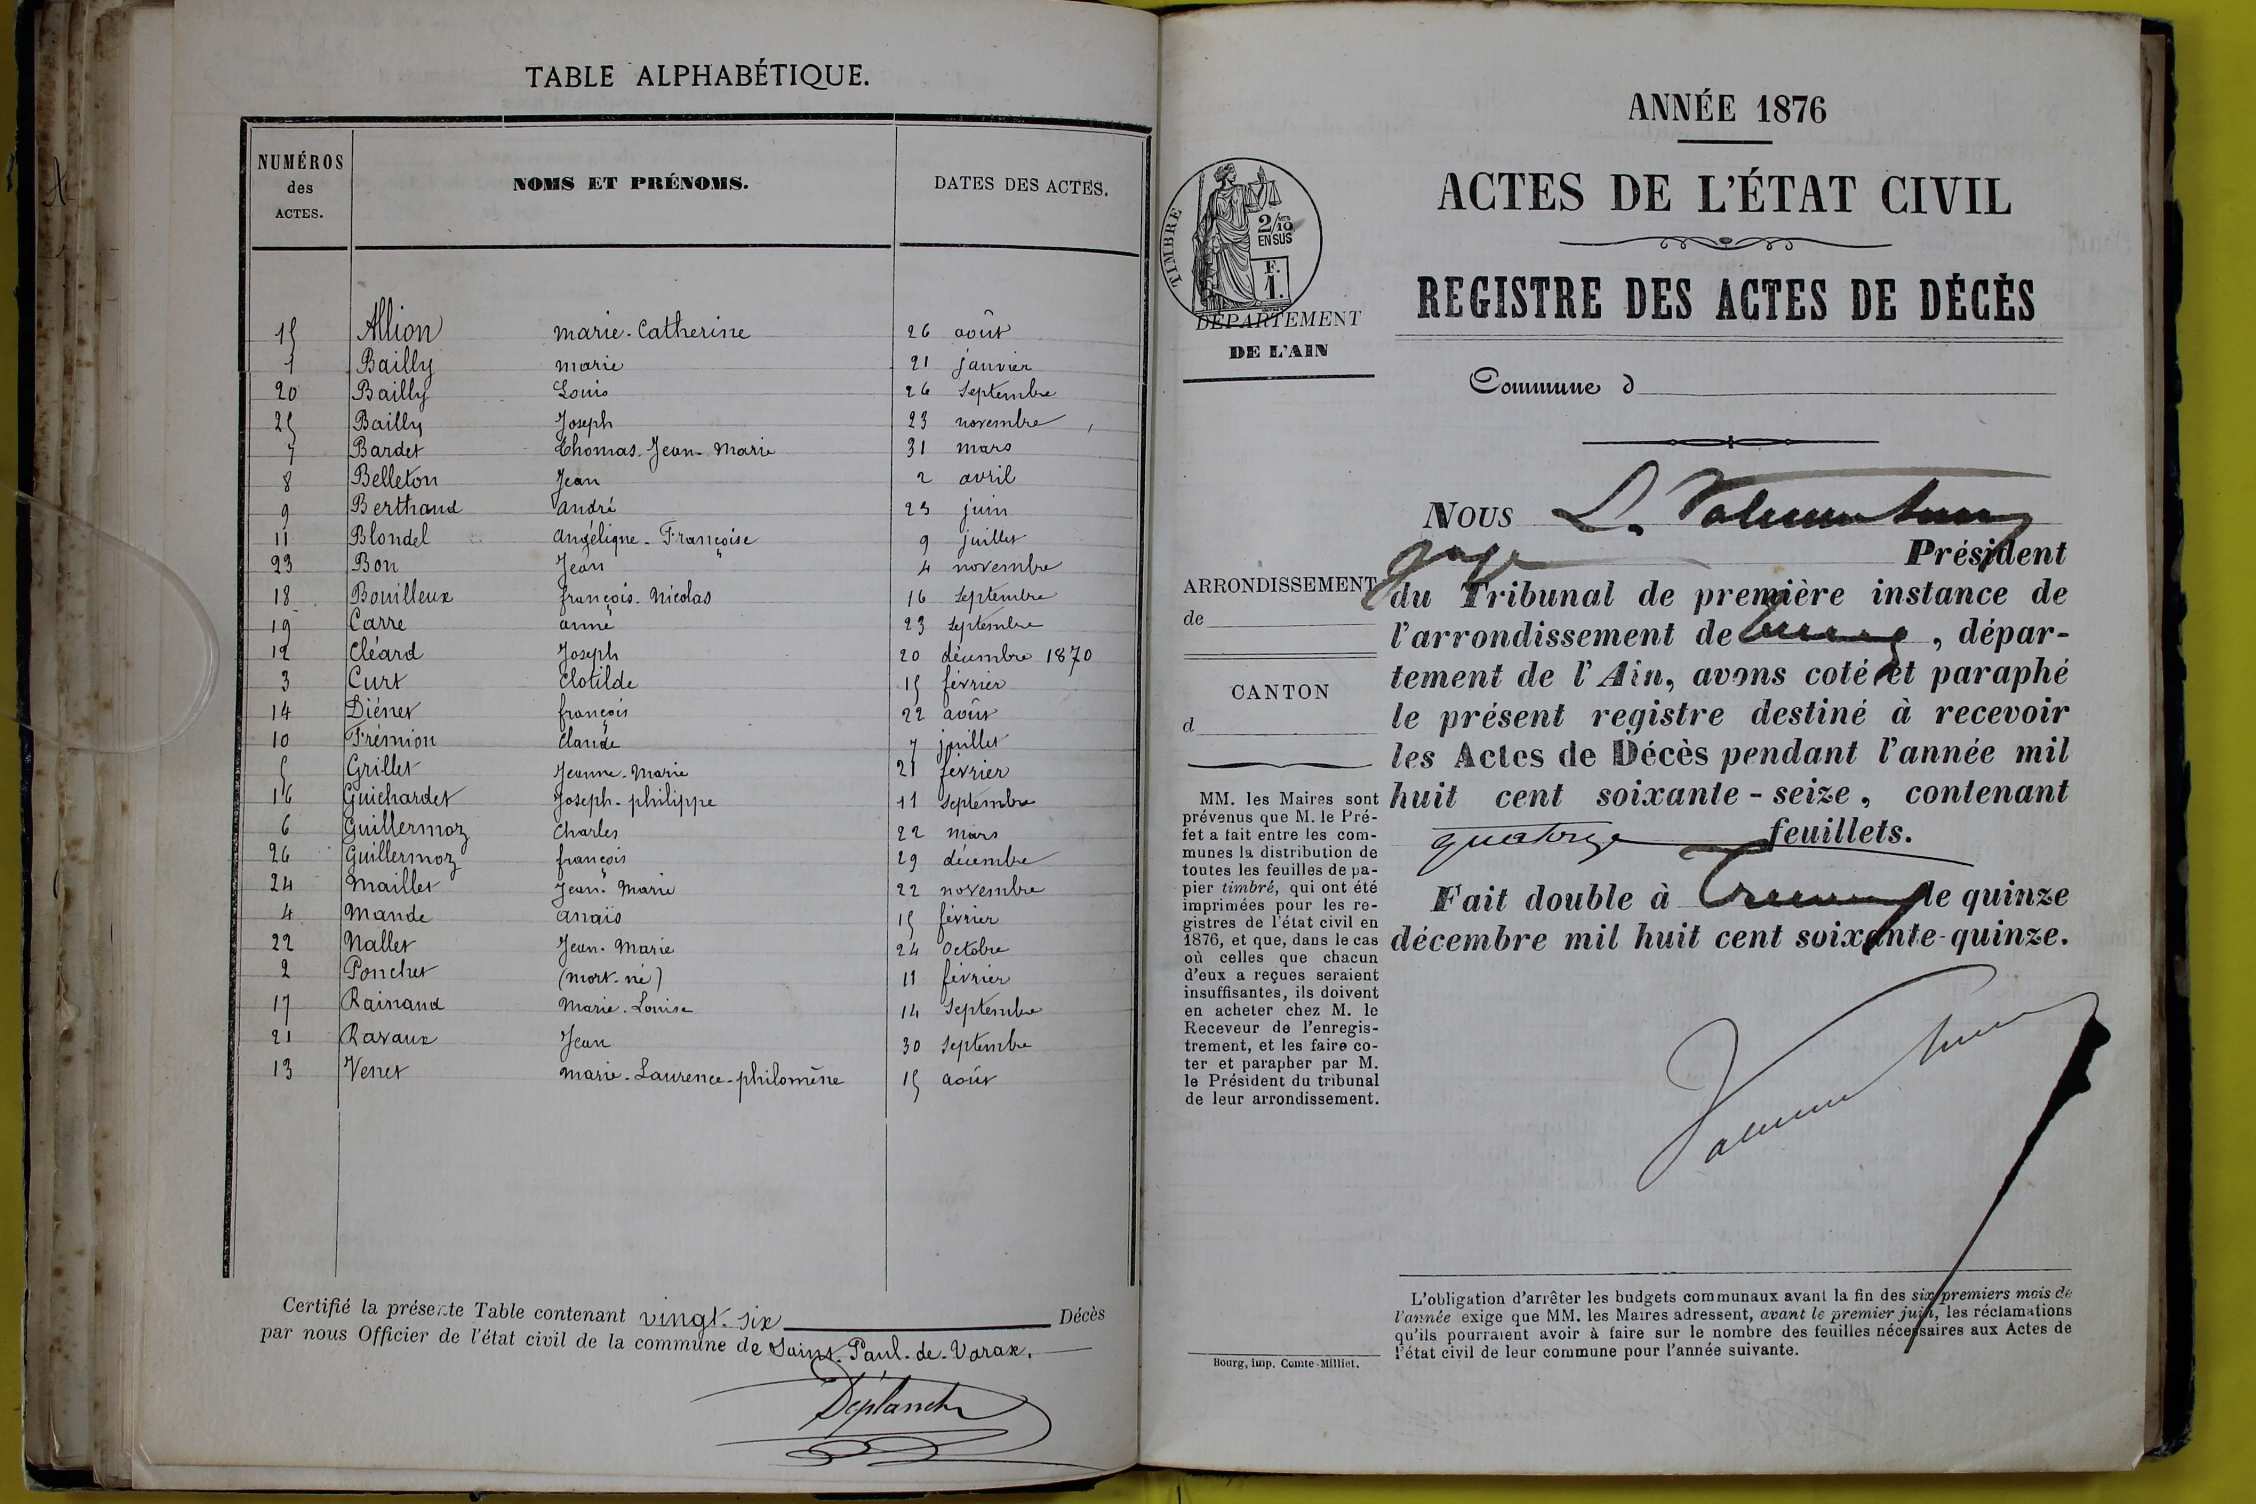 TABLE ALPHABÉTIQUE.
NUMÉROS des ACTES. NOMS ET PRÉNOMS. DATES DES ACTES.
15 Allion marie-Catherine 26 août
1 Bailly marie 21 janvier
20 Bailly Louis 26 septembre
25 Bailly Joseph 23 novembre
7 Bardet Thomas-Jean-Marie 31 mars
8 Belleton Jean 2 avril
9 Berthaud andré 23 juin
11 Blondel angélique-Françoise 9 juillet
23 Bon Jean 4 novembre
18 Bouilleux françois-Nicolas 16 septembre
19 Carre anne 23 septembre
12 Cléard Joseph 20 décembre 1870
3 Curt Clotilde 15 février
14 Diénet françois 22 août
10 Frémion Claude 7 juillet
5 Grillet Jeanne-Marie 21 février
16 Guichardet Joseph-philippe 11 septembre
6 Guillermoz Charles 22 mars
26 Guillermoz françois 29 décembre
24 Maillet Jean-Marie 22 novembre
4 Mande anaïs 15 février
22 Nallet Jean-Marie 24 Octobre
2 Ponchet (mort-né) 11 février
17 Rainaud Marie-Louise 14 Septembre
21 Ravaux Jean 30 septembre
13 Venet marie-Laurence-philomène 15 août
Certifié la présente Table contenant vingt-six Décès
par nous Officier de l'état civil de la commune de Saint-Paul-de-Varax.
Déplanche
ANNÉE 1876
ACTES DE L'ÉTAT CIVIL
REGISTRE DES ACTES DE DÉCÈS
TIMBRE
2/10
EN SUS
F.
1.
DÉPARTEMENT
DE L'AIN
Commune d
ARRONDISSEMENT
de
CANTON
d
MM. les Maires sont
prévenus que M. le Pré-
fet a fait entre les com-
munes la distribution de
toutes les feuilles de pa-
pier timbré, qui ont été
imprimées pour les re-
gistres de l'état civil en
1876, et que, dans le cas
où celles que chacun
d'eux a reçues seraient
insuffisantes, ils doivent
en acheter chez M. le
Receveur de l'enregis-
trement, et les faire co-
ter et parapher par M.
le Président du tribunal
de leur arrondissement.
Bourg, imp. Comte-Milliet.
NOUS L.
juge Président
du Tribunal de première instance de
l'arrondissement de Bourg, dépar-
tement de l'Ain, avons coté et paraphé
le présent registre destiné à recevoir
les Actes de Décès pendant l'année mil
huit cent soixante-seize, contenant
quatorze feuillets.
Fait double à Bourg le quinze
décembre mil huit cent soixante-quinze.
L'obligation d'arrêter les budgets communaux avant la fin des six premiers mois de
l'année exige que MM. les Maires adressent, avant le premier juin, les réclamations
qu'ils pourraient avoir à faire sur le nombre des feuilles nécessaires aux Actes de
l'état civil de leur commune pour l'année suivante.